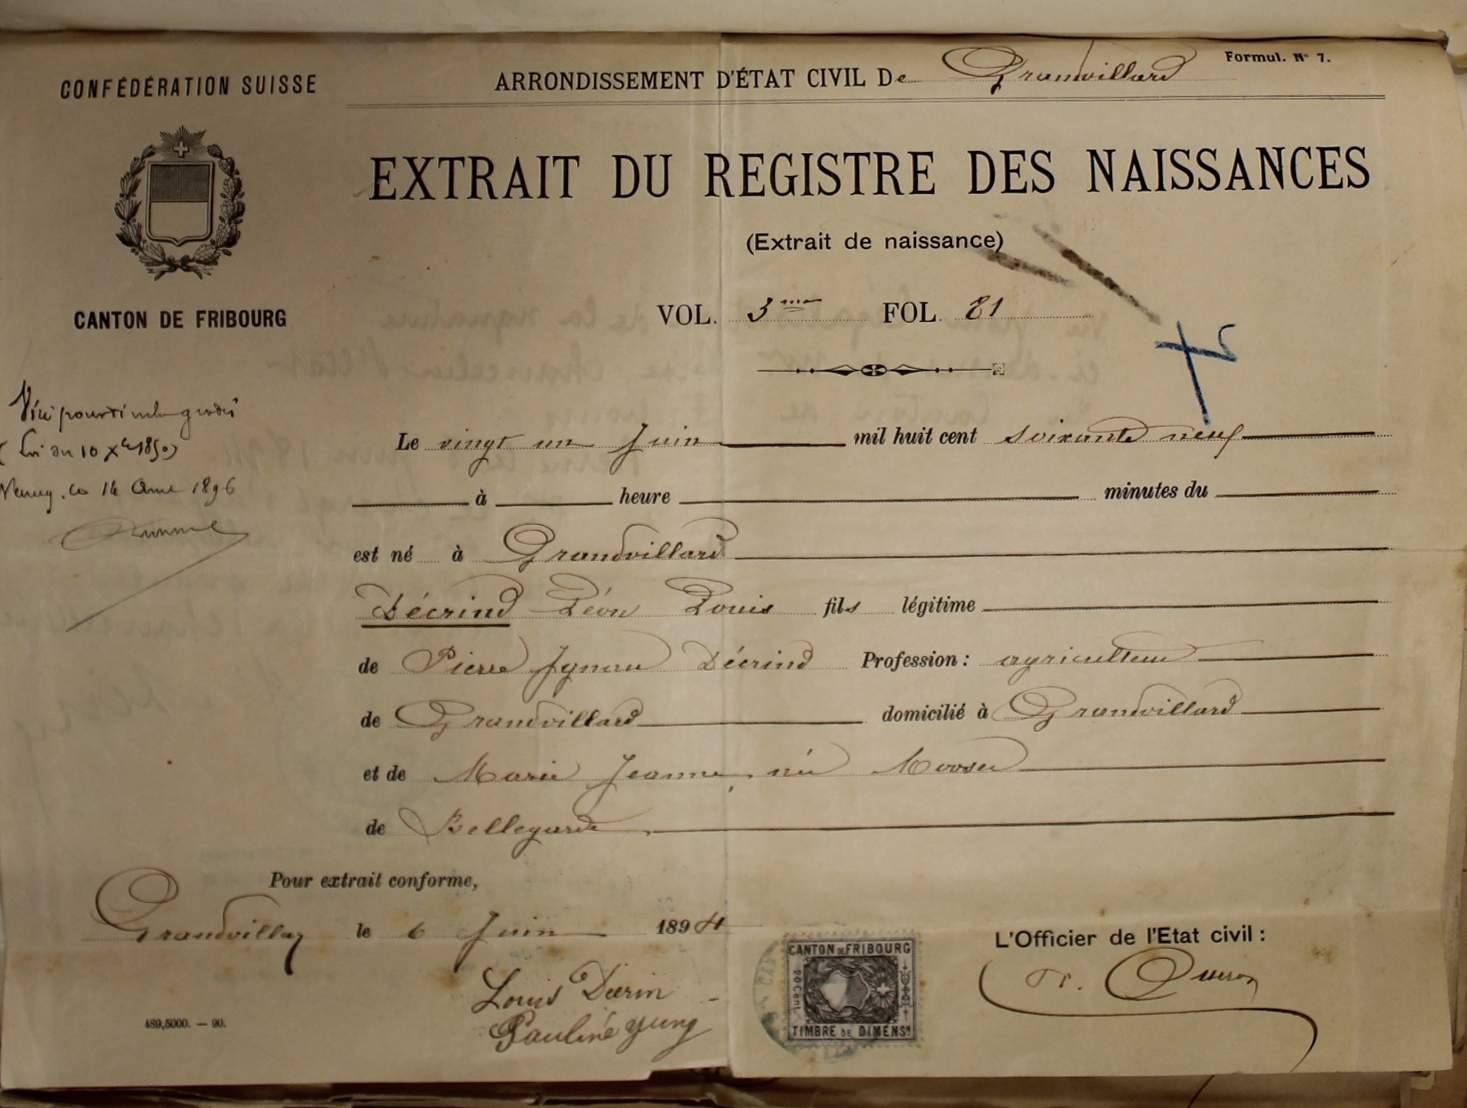 CONFÉDÉRATION SUISSE
ARRONDISSEMENT D'ÉTAT CIVIL De Grandvillard
Formul. N° 7.
EXTRAIT DU REGISTRE DES NAISSANCES
(Extrait de naissance)
CANTON DE FRIBOURG
VOL. 3me FOL. 81
Visé pour timbre gratis
(Loi du 10 Xbre 1850)
le 14 1896
Le vingt un Juin mil huit cent soixante neuf
à heure minutes du
est né à Grandvillard
Décrind Léon Louis fils légitime
de Pierre Ignace Décrind Profession : agriculteur
de Grandvillard domicilié à Grandvillard
et de Marie Jeanne, née Mooser
de Bellegarde
Pour extrait conforme,
Grandvillard le 6 Juin 1894
L'Officier de l'Etat civil :
Louis Décrin
Pauline Yung
CANTON DE FRIBOURG
TIMBRE DE DIMENSN
489,5000. — 90.